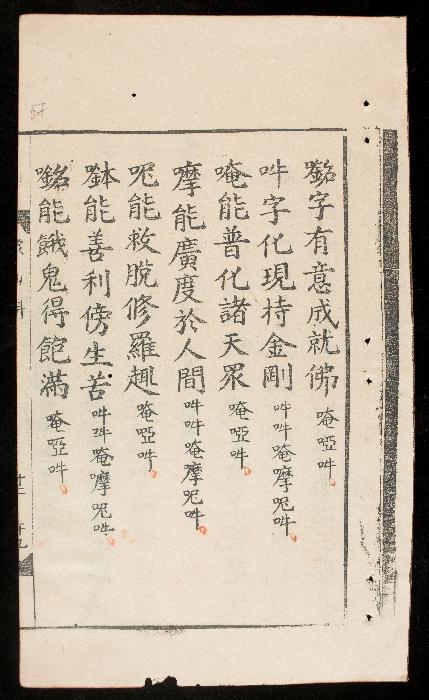 㘕字有意成就佛唵啞吽
吽字化現持金剛吽吽唵摩呢吽
唵能普化諸天眾唵啞吽
摩能廣度於人間吽吽唵摩呢吽
呢能救脫修羅趣唵啞吽
鉢能善利傍生苦吽吽唵摩呢吽
㘕能餓鬼得飽滿唵啞吽
57